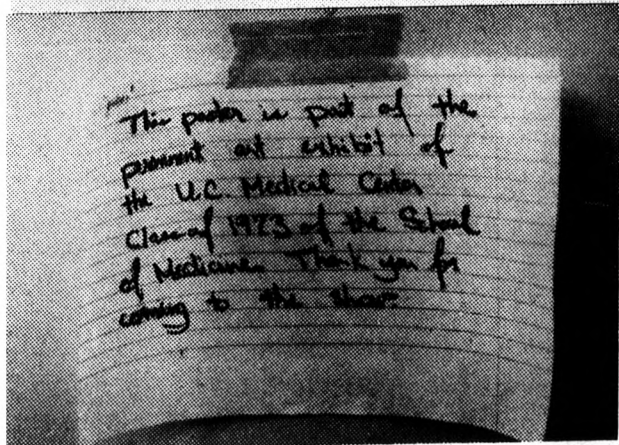 This poster is part of the
permanent art exhibit of
the U.C. Medical Center
Class of 1973 of the School
of Medicine. Thank you for
coming to the show.